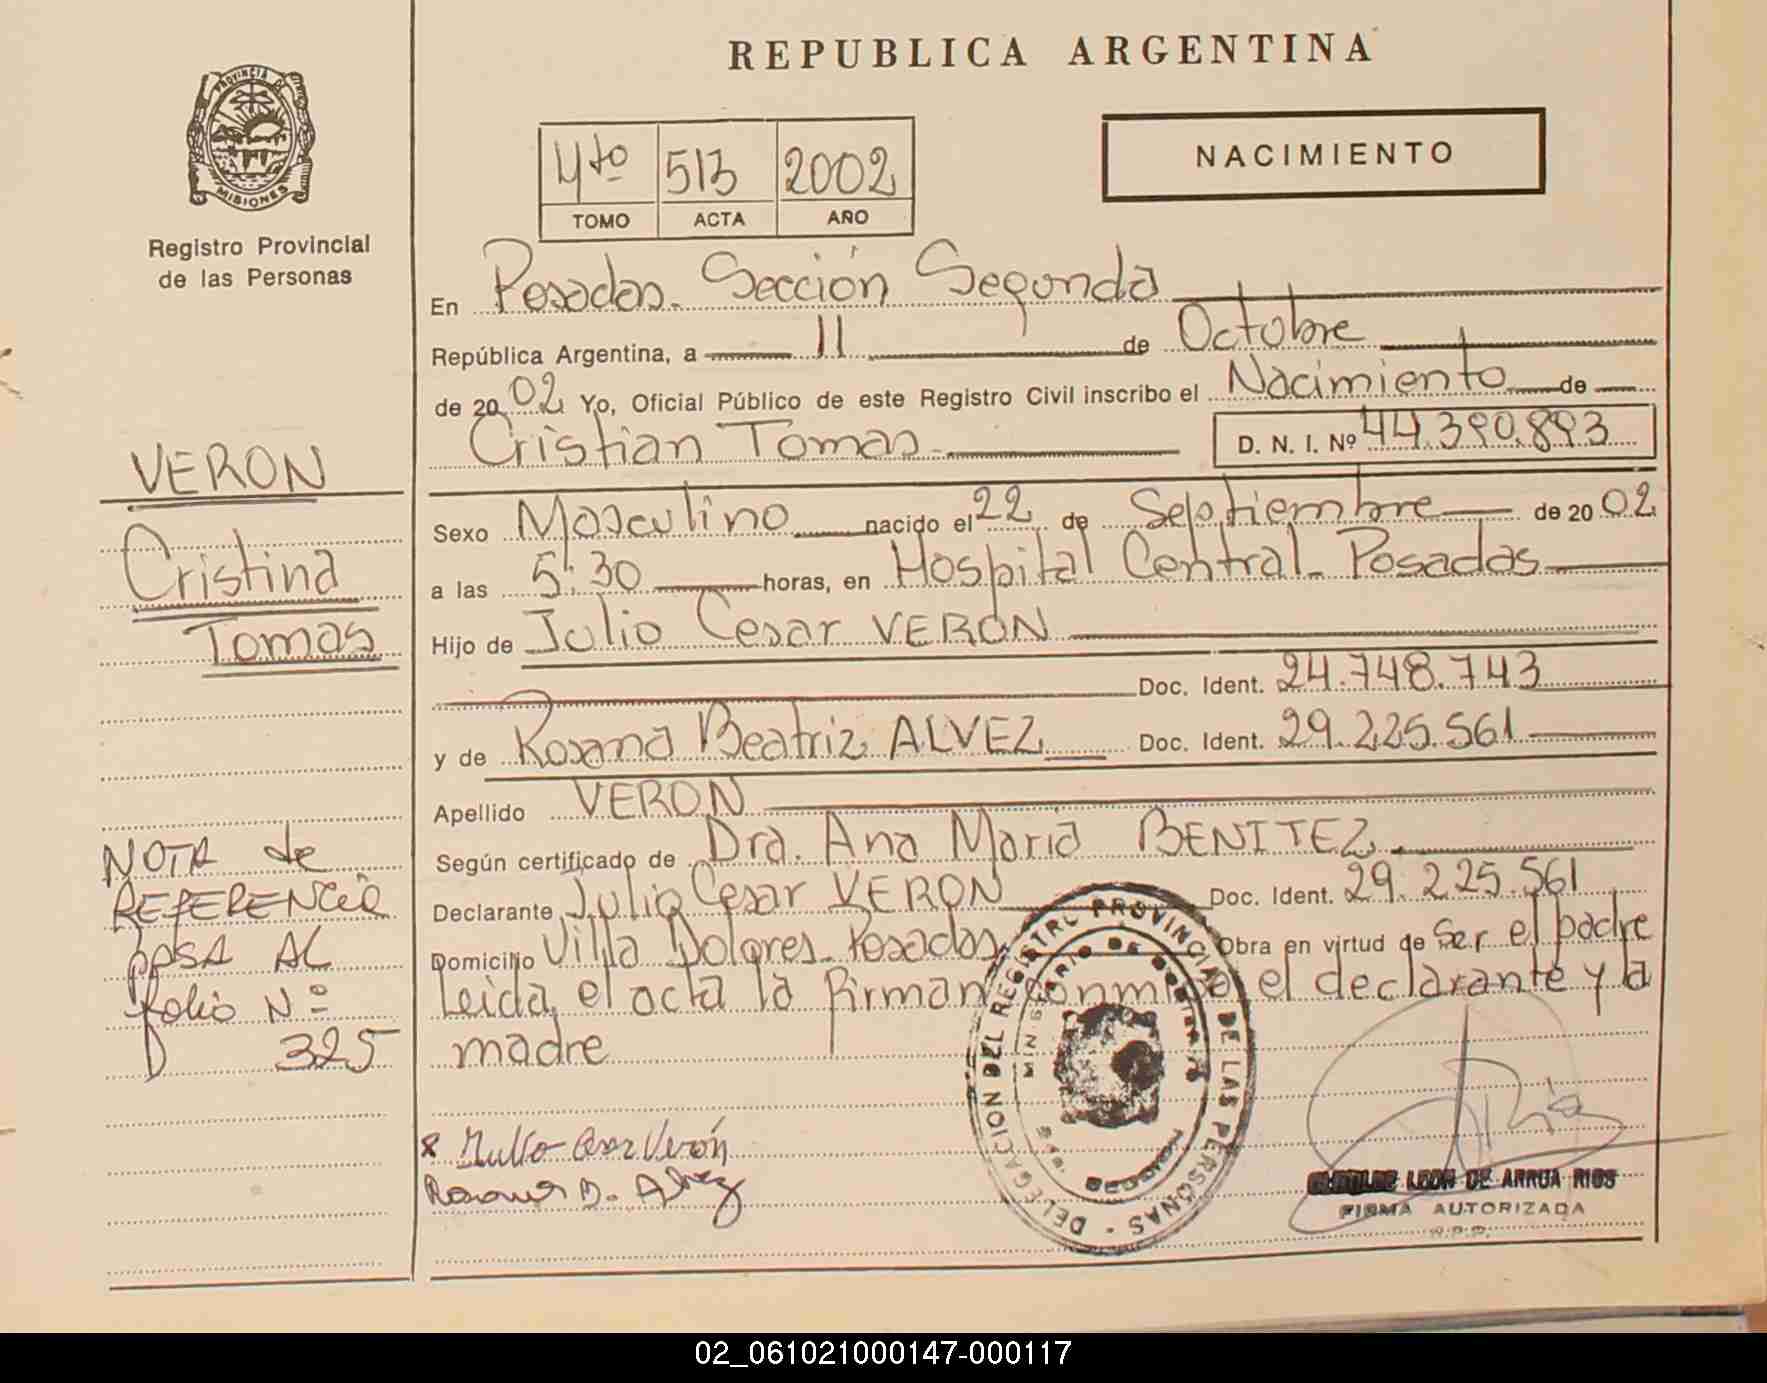 REPUBLICA ARGENTINA
PROVINCIA DE
MISIONES
Registro Provincial
de las Personas
4to 513 2002
TOMO ACTA AÑO
NACIMIENTO
En Posadas. Sección Segunda
República Argentina, a 11 de Octubre
de 2002 Yo, Oficial Público de este Registro Civil inscribo el Nacimiento de
Cristian Tomas. D. N. I. Nº 44.390.893
VERON
Cristina
Tomas
Sexo Masculino nacido el 22 de Septiembre de 2002
a las 5:30 horas, en Hospital Central. Posadas
Hijo de Julio Cesar VERON
Doc. Ident. 24.748.743
y de Rosana Beatriz ALVEZ Doc. Ident. 29.225.561
Apellido VERON
Según certificado de Dra. Ana Maria BENITEZ
Declarante Julio Cesar VERON Doc. Ident. 29.225.561
Domicilio Villa Dolores. Posadas Obra en virtud de ser el padre
Leida el acta la firman conmigo el declarante y la
madre
NOTA de
REFERENCIA
PASA AL
folio Nº
325
x Jullo Cesar Verón
Rosana B. Alvez
DELEGACION DEL REGISTRO PROVINCIAL DE LAS PERSONAS
LEON DE ARRUA RIOS
FIRMA AUTORIZADA
R.P.P.
02_061021000147-000117